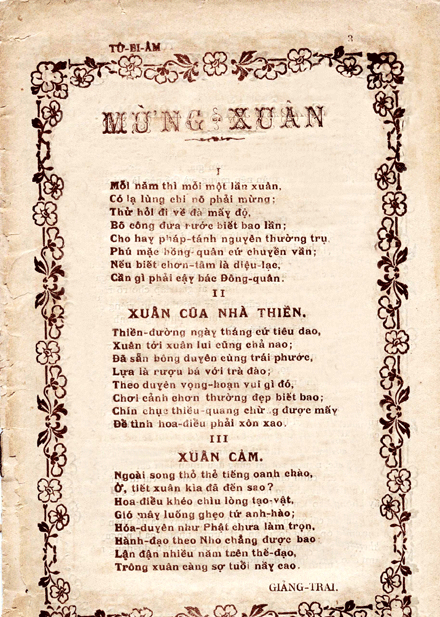 TỪ-BI-ÂM
3
MỪNG-XUÂN
I
Mỗi năm thì mỗi một lần xuân,
Có lạ lùng chi nõ phải mừng;
Thử hỏi đi về đà mấy độ,
Bõ công đưa rước biết bao lần;
Cho hay pháp-tánh nguyên thường trụ,
Phú mặc hồng-quân cứ chuyển vần;
Nếu biết chơn-tâm là diệu-lạc,
Cần gì phải cậy bác Đông-quân.
II
XUÂN CỦA NHÀ THIỀN.
Thiền-đường ngày tháng cứ tiêu dao,
Xuân tới xuân lui cũng chả nao;
Đã sẵn bông duyên cùng trái phước,
Lựa là rượu bá với trà đào;
Theo duyên vọng-hoạn vui gì đó,
Chơi cảnh chơn thường đẹp biết bao;
Chín chục thiều-quang chừng được mấy
Đề tình hoa-diều phải xôn xao.
III
XUÂN CẢM.
Ngoài song thỏ thẻ tiếng oanh chào,
Ờ, tiết xuân kìa đã đến sao?
Hoa-điểu khéo chiều lòng tạo-vật,
Gió mây luống ghẹo tứ anh-hào;
Hóa-duyên như Phật chưa làm trọn,
Hành-đạo theo Nho chẳng được bao
Lận đận nhiều năm trên thế-đạo,
Trông xuân càng sợ tuổi nầy cao.
GIẢNG-TRAI.